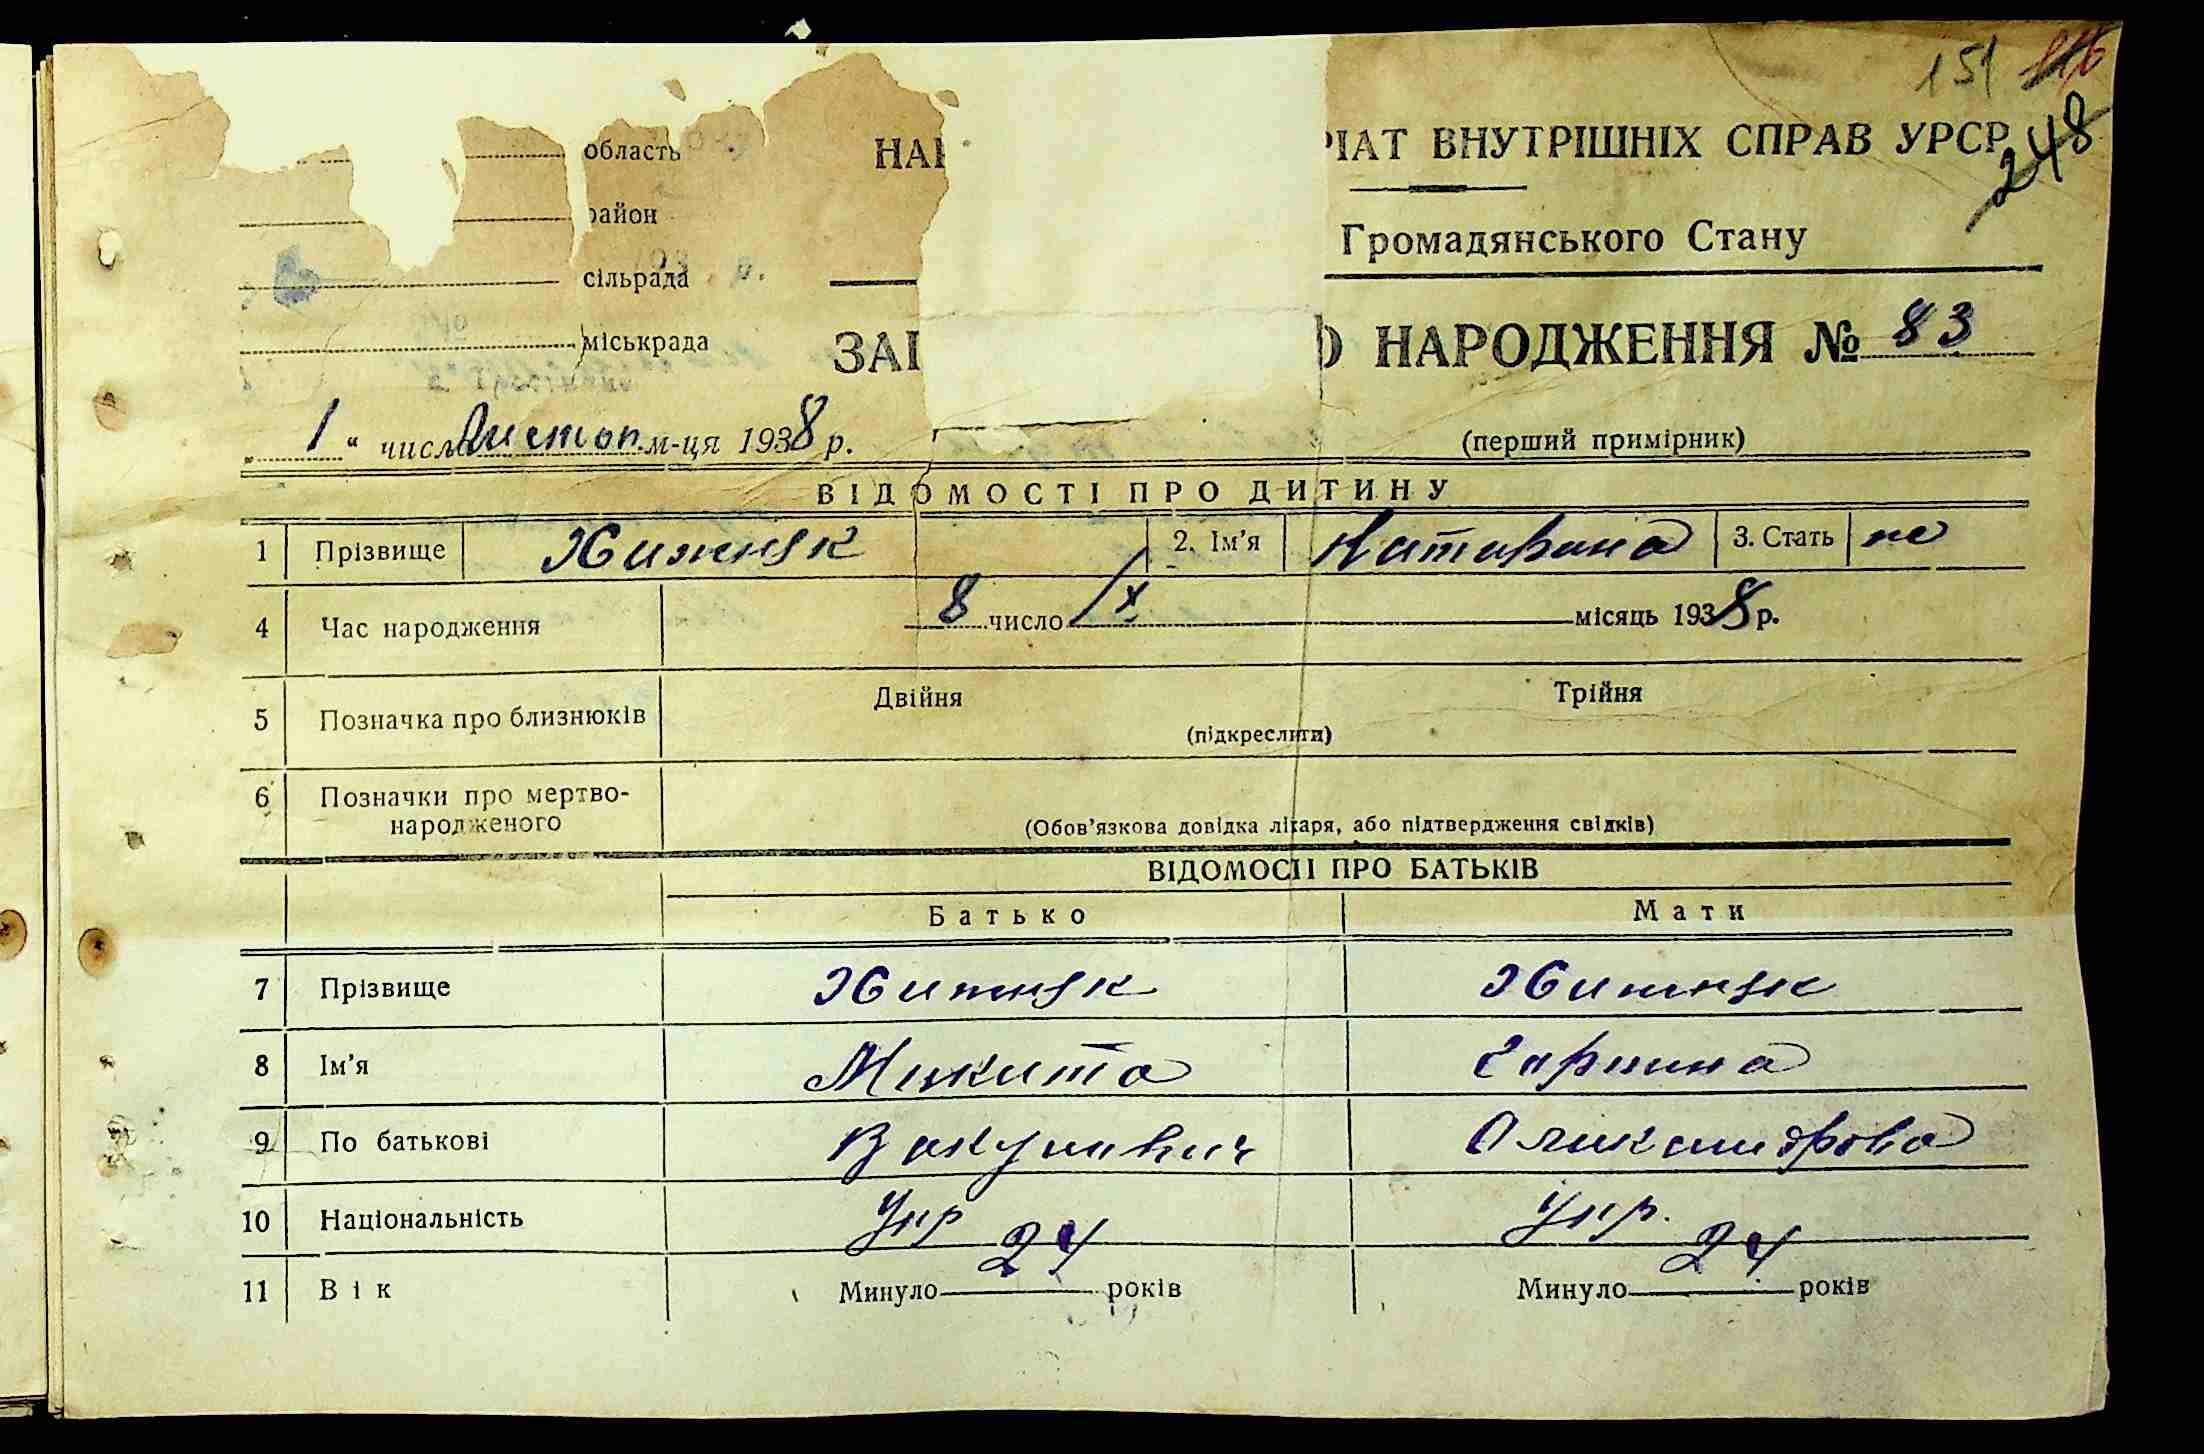 151
248
область
НА
РІАТ ВНУТРІШНІХ СПРАВ УРСР
район
Громадянського Стану
сільрада
міськрада
ЗАП
О НАРОДЖЕННЯ № 83
„ 1 “ числ Листоп. м-ця 1938 р.
(перший примірник)
ВІДОМОСТІ ПРО ДИТИНУ
1 Прізвище Хижняк 2. Ім'я Катирина 3. Стать
4 Час народження 8 число / X місяць 1938 р.
5 Позначка про близнюків Двійня Трійня
(підкреслити)
6 Позначки про мертво-
народженого
(Обов'язкова довідка лікаря, або підтвердження свідків)
ВІДОМОСТІ ПРО БАТЬКІВ
Батько Мати
7 Прізвище Хижняк Хижняк
8 Ім'я Микита
9 По батькові Вакулович Оликсандровна
10 Національність Укр Укр.
11 Вік Минуло 24 років Минуло 24 років